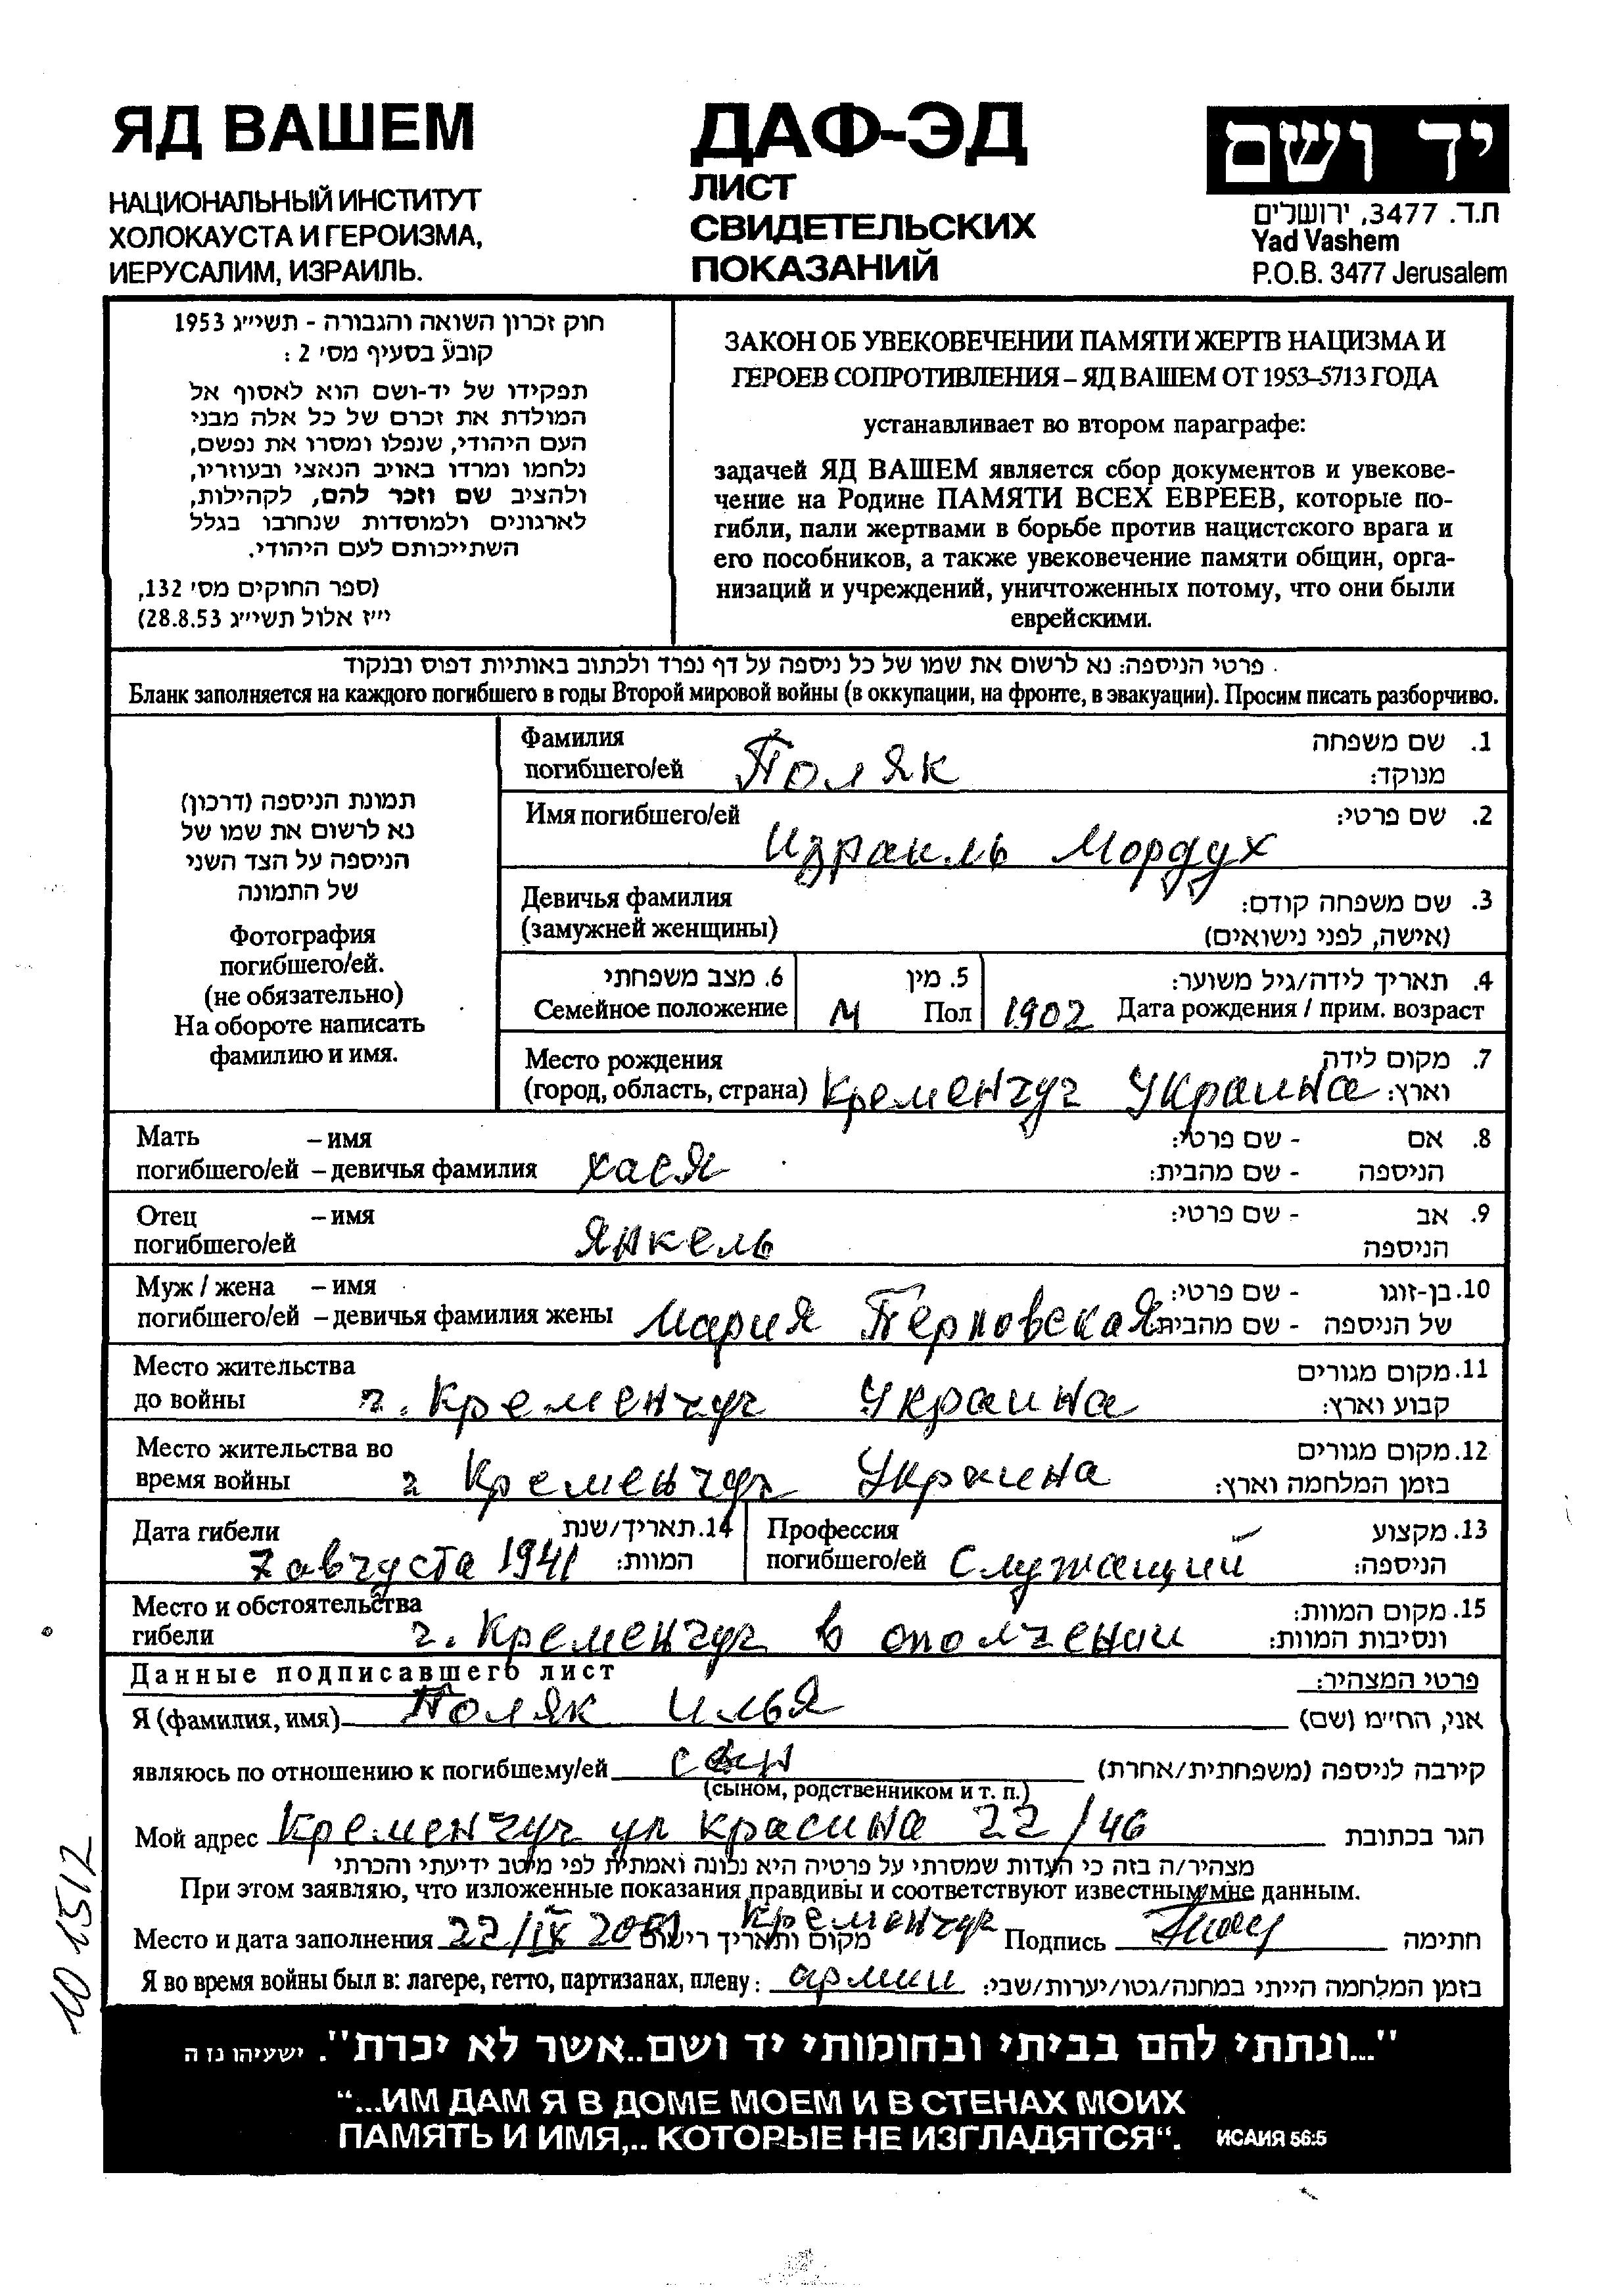 ЯД ВАШЕМ
НАЦИОНАЛЬНЫЙ ИНСТИТУТ
ХОЛОКАУСТА И ГЕРОИЗМА,
ИЕРУСАЛИМ, ИЗРАИЛЬ.
ДАФ-ЭД
ЛИСТ
СВИДЕТЕЛЬСКИХ
ПОКАЗАНИЙ
יד ושם
ת.ד. 3477, ירושלים
Yad Vashem
P.O.B. 3477 Jerusalem
חוק זכרון השואה והגבורה - תשי״ג 1953
קובע בסעיף מס׳ 2 :
תפקידו של יד-ושם הוא לאסוף אל
המולדת את זכרם של כל אלה מבני
העם היהודי, שנפלו ומסרו את נפשם,
נלחמו ומרדו באויב הנאצי ובעוזריו,
ולהציב שם וזכר להם, לקהילות,
לארגונים ולמוסדות שנחרבו בגלל
השתייכותם לעם היהודי.
(ספר החוקים מס׳ 132,
י״ז אלול תשי״ג 28.8.53)
ЗАКОН ОБ УВЕКОВЕЧЕНИИ ПАМЯТИ ЖЕРТВ НАЦИЗМА И
ГЕРОЕВ СОПРОТИВЛЕНИЯ – ЯД ВАШЕМ ОТ 1953–5713 ГОДА
устанавливает во втором параграфе:
задачей ЯД ВАШЕМ является сбор документов и увекове-
чение на Родине ПАМЯТИ ВСЕХ ЕВРЕЕВ, которые по-
гибли, пали жертвами в борьбе против нацистского врага и
его пособников, а также увековечение памяти общин, орга-
низаций и учреждений, уничтоженных потому, что они были
еврейскими.
פרטי הניספה: נא לרשום את שמו של כל ניספה על דף נפרד ולכתוב באותיות דפוס ובנקוד
Бланк заполняется на каждого погибшего в годы Второй мировой войны (в оккупации, на фронте, в эвакуации). Просим писать разборчиво.
תמונת הניספה (דרכון)
נא לרשום את שמו של
הניספה על הצד השני
של התמונה
Фотография
погибшего/ей.
(не обязательно)
На обороте написать
фамилию и имя.
Фамилия 1. שם משפחה
погибшего/ей Поляк מנוקד:
Имя погибшего/ей 2. שם פרטי:
Израиль Мордух
Девичья фамилия 3. שם משפחה קודם:
(замужней женщины) (אישה, לפני נישואים)
6. מצב משפחתי 5. מין 4. תאריך לידה/גיל משוער:
Семейное положение М Пол 1902 Дата рождения / прим. возраст
Место рождения 7. מקום לידה
(город, область, страна) Кременчуг Украина וארץ:
Мать – имя 8. אם - שם פרטי:
погибшего/ей – девичья фамилия Хася הניספה - שם מהבית:
Отец – имя 9. אב - שם פרטי:
погибшего/ей Янкель הניספה
Муж / жена – имя 10. בן-זוגו - שם פרטי:
погибшего/ей – девичья фамилия жены Мария Перновская של הניספה - שם מהבית:
Место жительства 11. מקום מגורים
до войны г. Кременчуг Украина קבוע וארץ:
Место жительства во 12. מקום מגורים
время войны г Кременчуг Украина בזמן המלחמה וארץ:
Дата гибели 14. תאריך/שנת Профессия 13. מקצוע
7 августа 1941 המוות: погибшего/ей Служащий הניספה:
Место и обстоятельства 15. מקום המוות:
гибели г. Кременчуг в ополчении ונסיבות המוות:
Данные подписавшего лист פרטי המצהיר:
Я (фамилия, имя) Поляк Илья אני, הח״מ (שם)
являюсь по отношению к погибшему/ей сын קירבה לניספה (משפחתית/אחרת)
(сыном, родственником и т. п.)
Мой адрес Кременчуг ул красина 22/46 הגר בכתובת
מצהיר/ה בזה כי העדות שמסרתי על פרטיה היא נכונה ואמתית לפי מיטב ידיעתי והכרתי
При этом заявляю, что изложенные показания правдивы и соответствуют известным мне данным.
Место и дата заполнения 22/IX 2001 Кременчуг מקום ותאריך רישום Подпись חתימה
Я во время войны был в: лагере, гетто, партизанах, плену: армии בזמן המלחמה הייתי במחנה/גטו/יערות/שבי:
10 1512
"...ונתתי להם בביתי ובחומותי יד ושם..אשר לא יכרת". ישעיהו נז ה
“...ИМ ДАМ Я В ДОМЕ МОЕМ И В СТЕНАХ МОИХ
ПАМЯТЬ И ИМЯ,.. КОТОРЫЕ НЕ ИЗГЛАДЯТСЯ“. ИСАИЯ 56:5